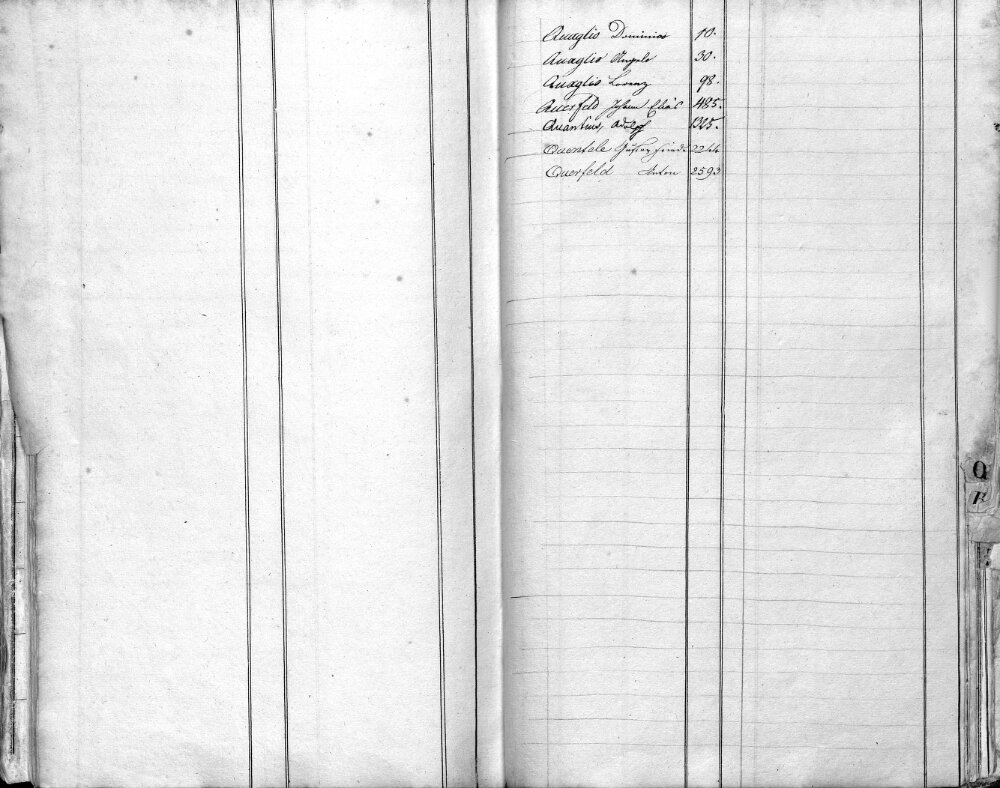 Quaglio Dominico 10.
Quaglio Angelo 30.
Quaglio Lorenz 98.
Querfeld Johann Elias 485.
Quantius, Adolph 1365.
Quentele 2244
Querfeld Anton 2593
Q
R